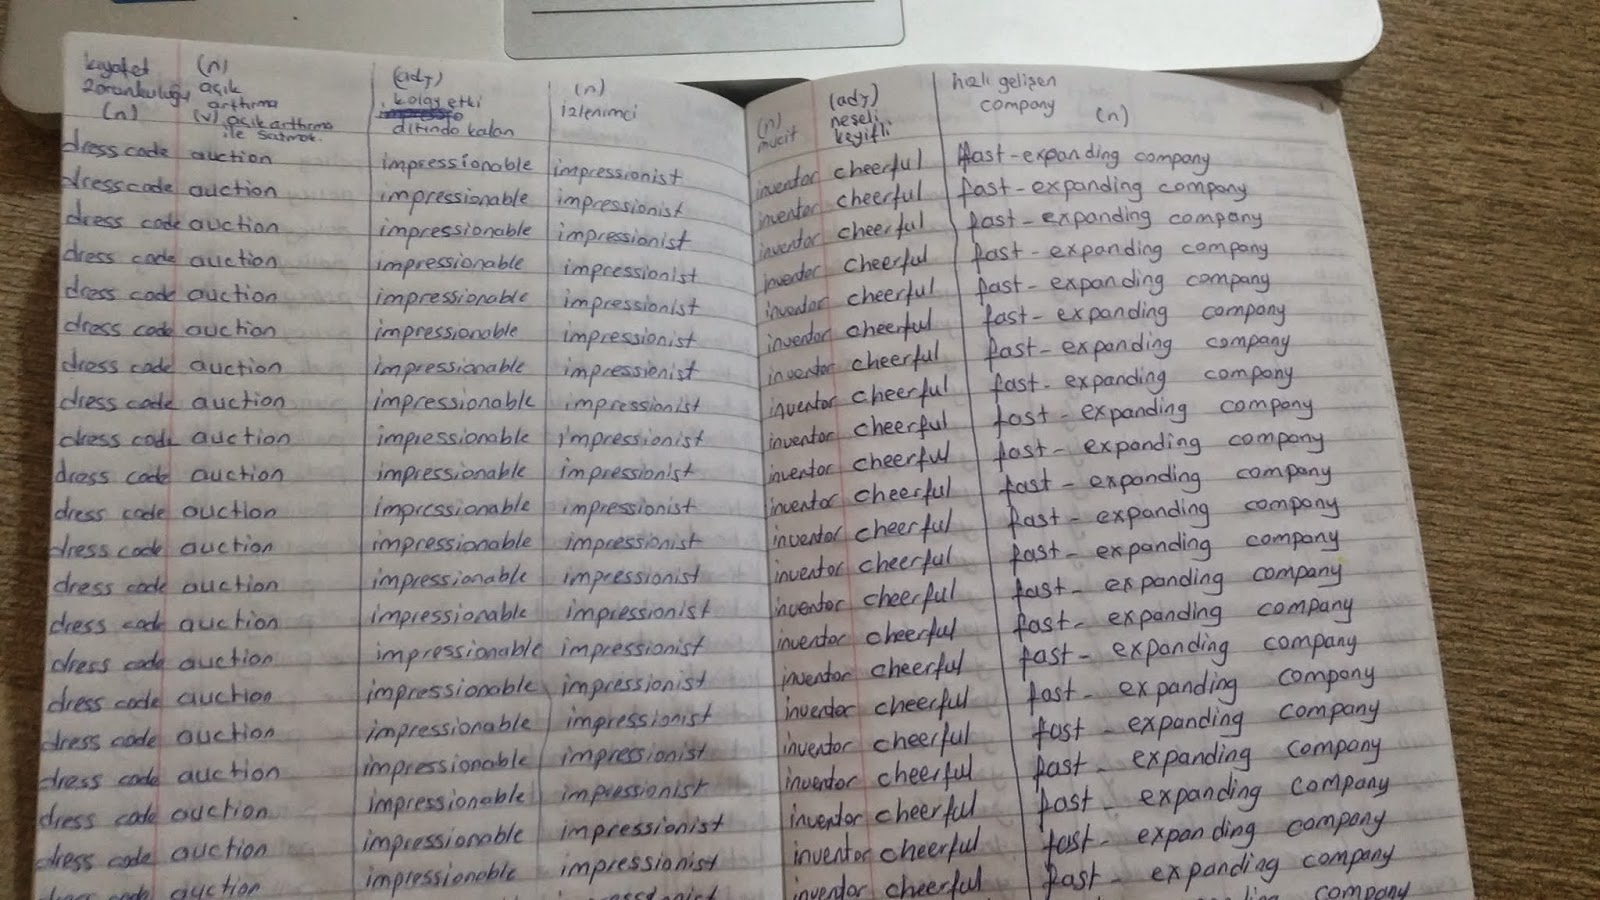 kıyafet (n) (adj) (n)
zorunluluğu açık kolay etki izlenimci
(n) arttırma altında kalan
(v) açık arttırma
ile satmak.
dress code auction impressionable impressionist
dress code auction impressionable impressionist
dress code auction impressionable impressionist
dress code auction impressionable impressionist
dress code auction impressionable impressionist
dress code auction impressionable impressionist
dress code auction impressionable impressionist
dress code auction impressionable impressionist
dress code auction impressionable impressionist
dress code auction impressionable impressionist
dress code auction impressionable impressionist
dress code auction impressionable impressionist
dress code auction impressionable impressionist
dress code auction impressionable impressionist
dress code auction impressionable impressionist
dress code auction impressionable impressionist
dress code auction impressionable impressionist
dress code auction impressionable impressionist
dress code auction impressionable impressionist
dress code auction impressionable impressionist
dress code auction impressionable impressionist
(adj) hızlı gelişen
(n) neşeli company (n)
mucit keyifli
inventor cheerful fast-expanding company
inventor cheerful fast-expanding company
inventor cheerful fast-expanding company
inventor cheerful fast-expanding company
inventor cheerful fast-expanding company
inventor cheerful fast-expanding company
inventor cheerful fast-expanding company
inventor cheerful fast-expanding company
inventor cheerful fast-expanding company
inventor cheerful fast-expanding company
inventor cheerful fast-expanding company
inventor cheerful fast-expanding company
inventor cheerful fast-expanding company
inventor cheerful fast-expanding company
inventor cheerful fast-expanding company
inventor cheerful fast-expanding company
inventor cheerful fast-expanding company
inventor cheerful fast-expanding company
inventor cheerful fast-expanding company
inventor cheerful fast-expanding company
inventor cheerful fast-expanding company
inventor cheerful fast-expanding company
company